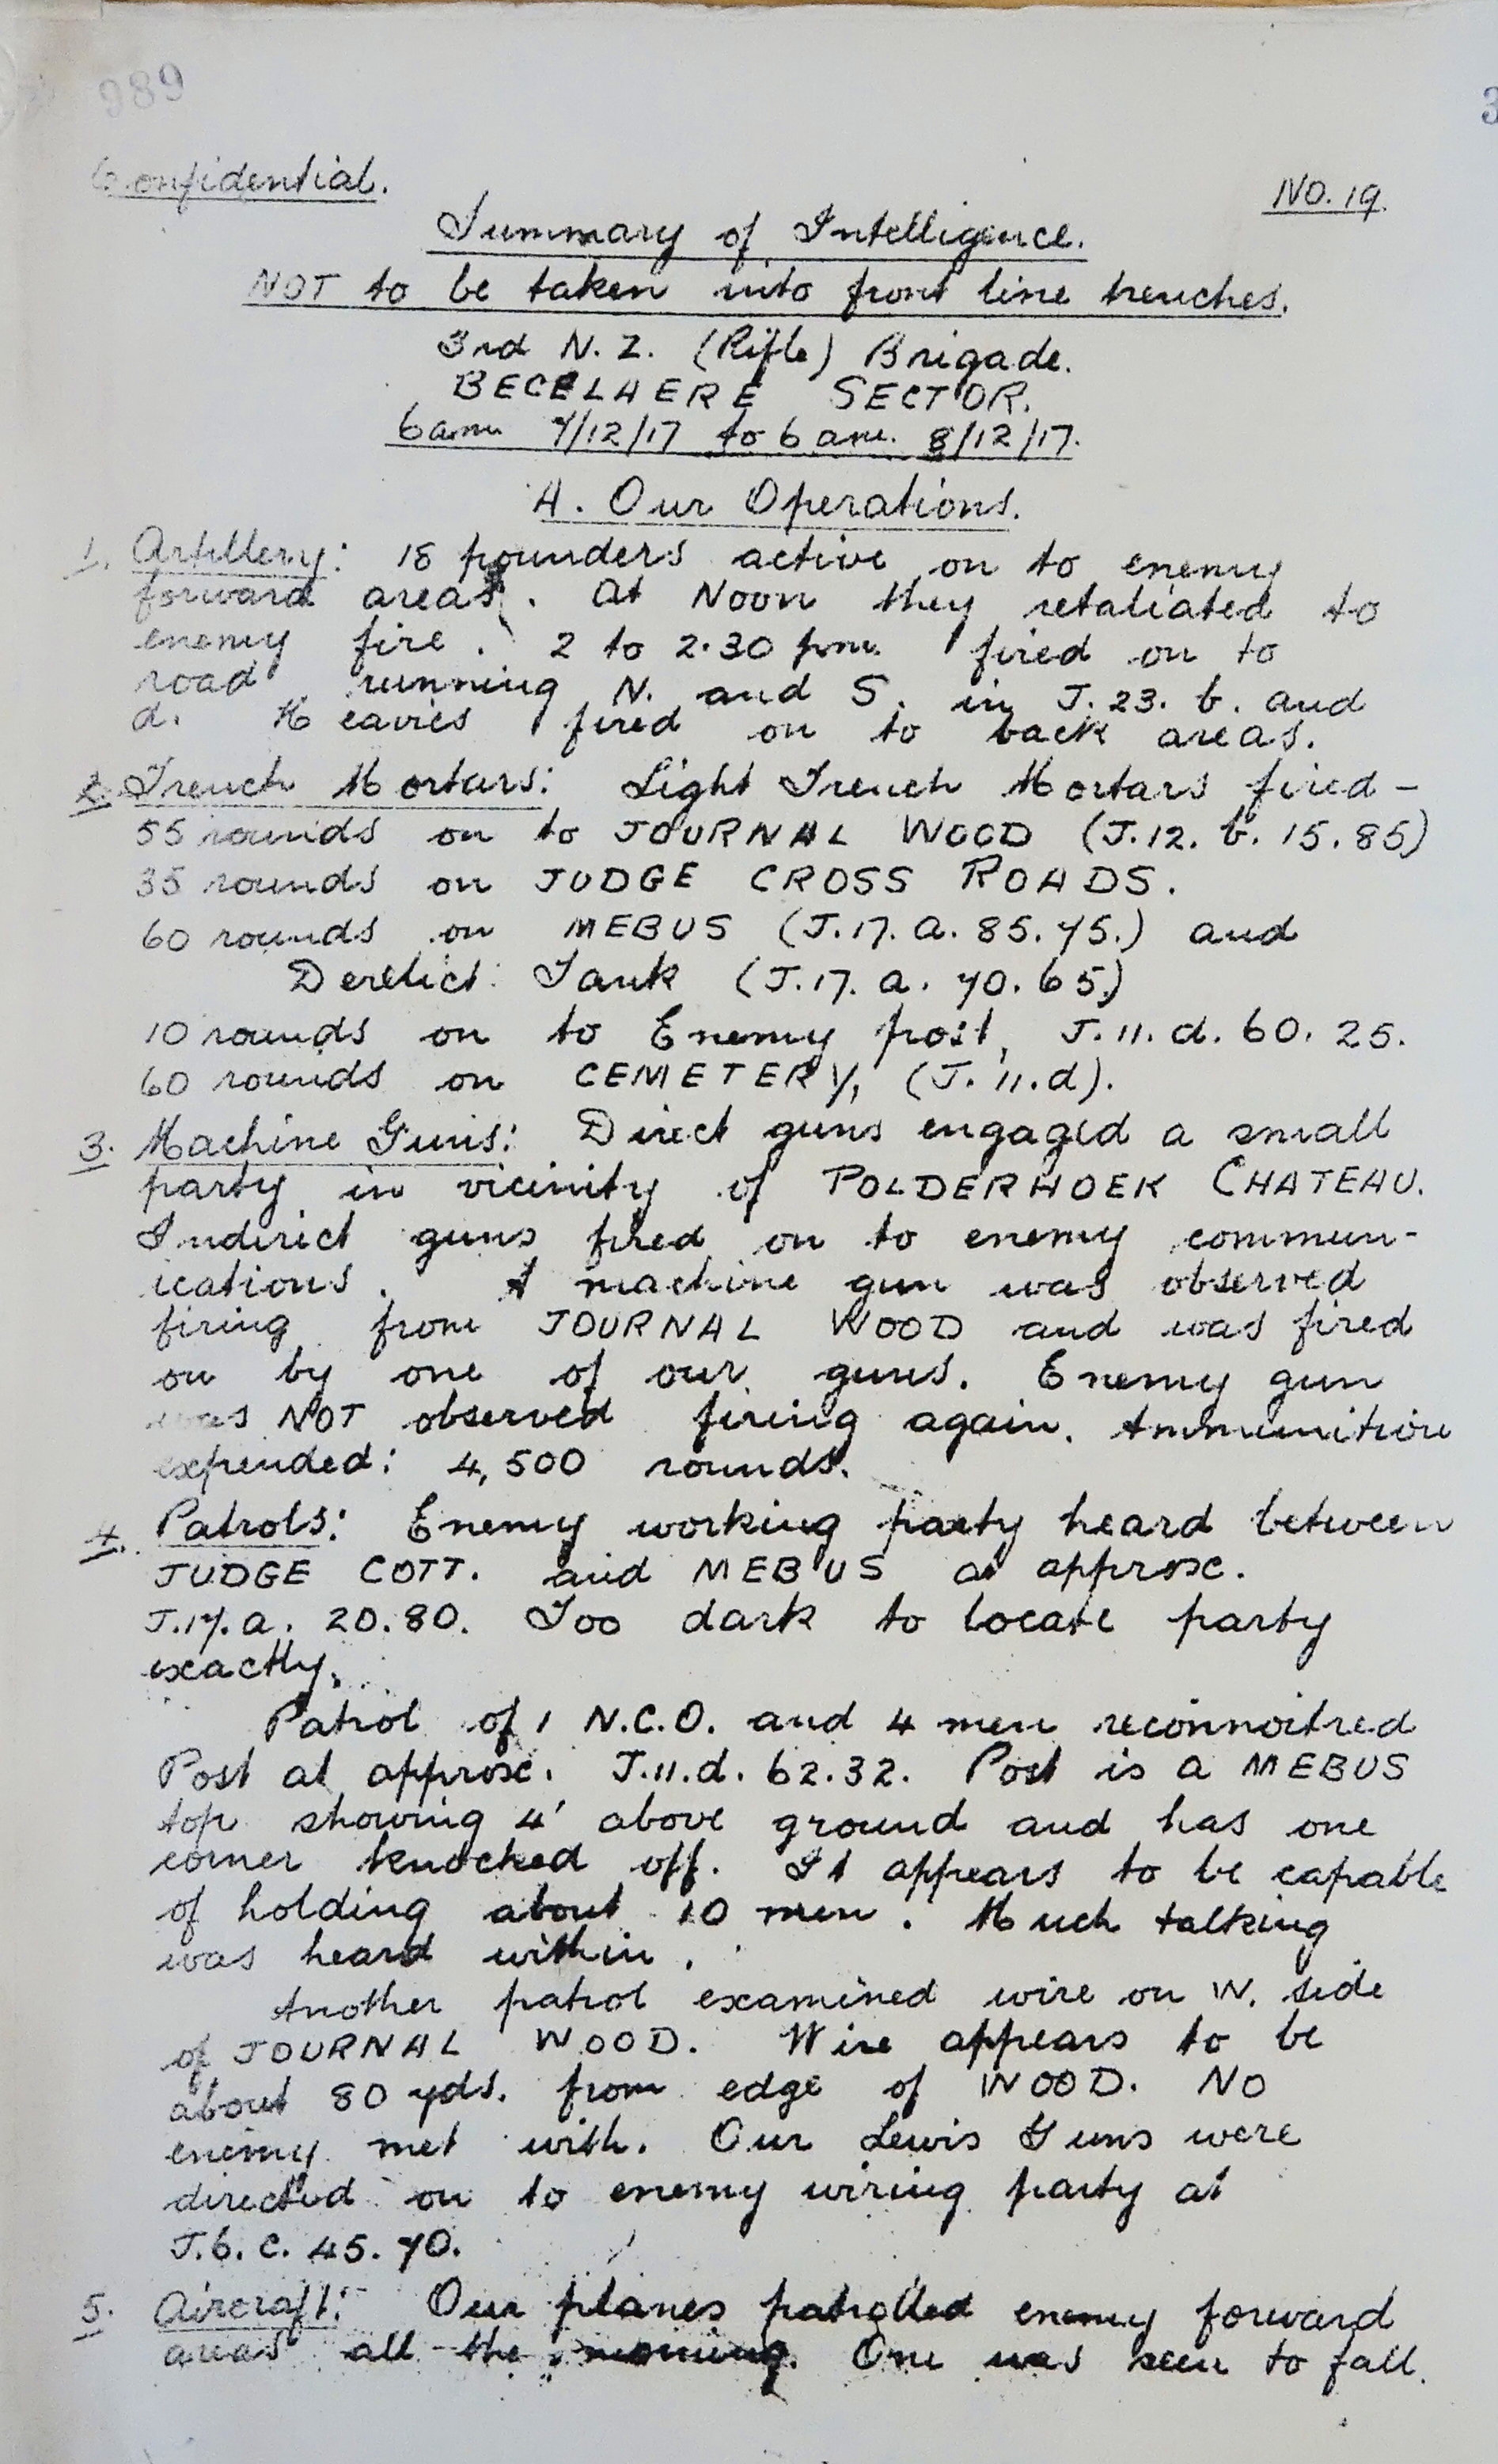 989
3
Confidential.
NO. 19.
Summary of Intelligence.
NOT to be taken into front line trenches.
3rd N. Z. (Rifle) Brigade.
BECELAERE SECTOR.
6 am. 7/12/17 to 6 am. 8/12/17.
A. Our Operations.
1. Artillery: 18 pounders active on to enemy
forward areas. At Noon they retaliated to
enemy fire. 2 to 2.30 pm. fired on to
road running N. and S. in J.23. b. and
d. Heavies fired on to back areas.
2. Trench Mortars: Light Trench Mortars fired -
55 rounds on to JOURNAL WOOD (J.12. b. 15.85)
35 rounds on JUDGE CROSS ROADS.
60 rounds on MEBUS (J.17. a. 85.75.) and
Derelict Tank (J.17. a. 70.65.)
10 rounds on to Enemy post, J.11. d. 60. 25.
60 rounds on CEMETERY, (J. 11. d).
3. Machine Guns: Direct guns engaged a small
party in vicinity of POLDERHOEK CHATEAU.
Indirect guns fired on to enemy commun-
ications. A machine gun was observed
firing from JOURNAL WOOD and was fired
on by one of our guns. Enemy gun
was NOT observed firing again. Ammunition
expended: 4,500 rounds.
4. Patrols: Enemy working party heard between
JUDGE COTT. and MEBUS at approx.
J.17. a. 20.80. Too dark to locate party
exactly.
Patrol of 1 N.C.O. and 4 men reconnoitred
Post at approx. J.11. d. 62.32. Post is a MEBUS
top showing 4' above ground and has one
corner knocked off. It appears to be capable
of holding about 10 men. Much talking
was heard within.
Another patrol examined wire on W. side
of JOURNAL WOOD. Wire appears to be
about 80 yds. from edge of WOOD. NO
enemy met with. Our Lewis Guns were
directed on to enemy wiring party at
J.6. c. 45.70.
5. Aircraft: Our planes patrolled enemy forward
areas all the morning. One was seen to fall.